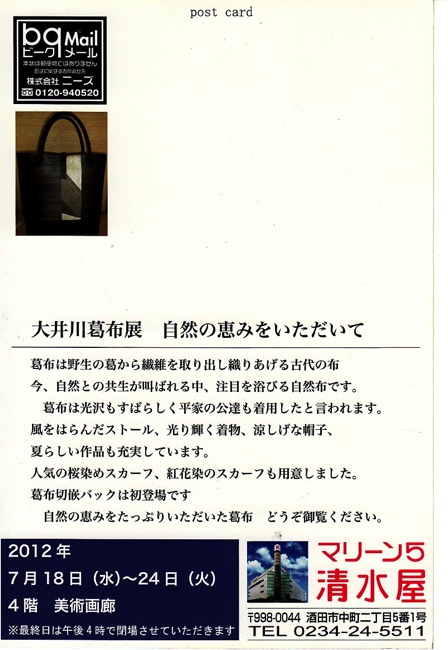 post card
bq Mail
ビークメール
本状は郵便物ではありません
株式会社 ニーズ
0120-940520
大井川葛布展　自然の恵みをいただいて
葛布は野生の葛から繊維を取り出し織りあげる古代の布
今、自然との共生が叫ばれる中、注目を浴びる自然布です。
葛布は光沢もすばらしく平家の公達も着用したと言われます。
風をはらんだストール、光り輝く着物、涼しげな帽子、
夏らしい作品も充実しています。
人気の桜染めスカーフ、紅花染のスカーフも用意しました。
葛布切嵌バックは初登場です
自然の恵みをたっぷりいただいた葛布　どうぞ御覧ください。
2012年
7月18日（水）～24日（火）
4階　美術画廊
※最終日は午後4時で閉場させていただきます
マリーン5
清水屋
〒998-0044 酒田市中町二丁目5番1号
TEL 0234-24-5511